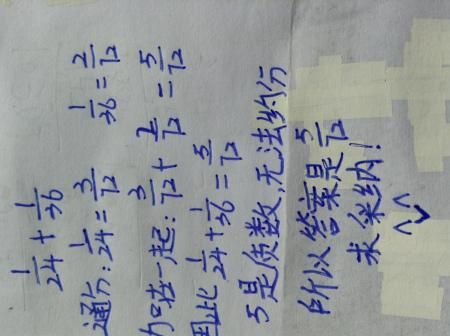 1/24 + 1/36
通分: 1/24 = 3/72 1/36 = 2/72
加在一起: 3/72 + 2/72 = 5/72
因此 1/24 + 1/36 = 5/72
5是质数,无法约分
所以答案是 5/72
求采纳!